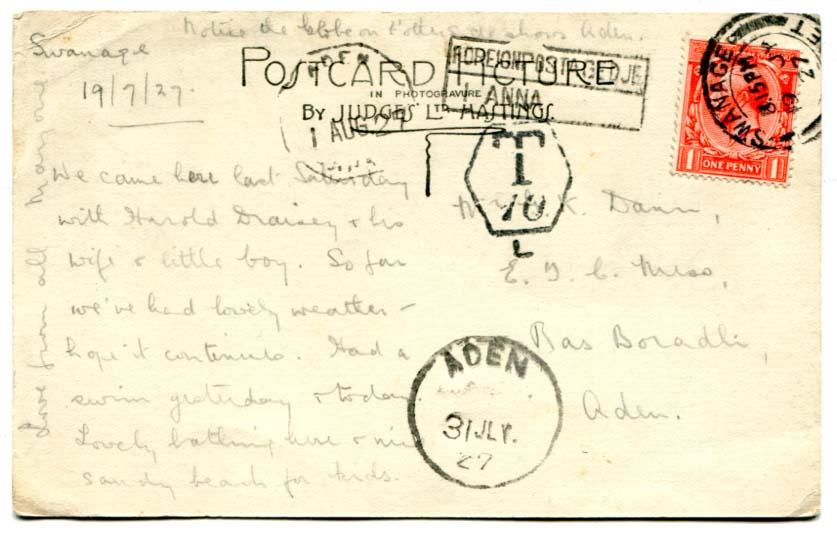 Notice the Globe on t'other side shows Aden.
Swanage
19/7/27.
POSTCARD PICTURE
IN PHOTOGRAVURE
BY JUDGES' LTD HASTINGS.
ADEN
1 AUG 27
FOREIGN POSTAGE DUE
ANNA
T
10
L
SWANAGE
8.15 PM
27
1 ONE PENNY 1
We came here last Saturday
with Harold Draisey & his
wife & little boy. So far
we've had lovely weather –
hope it continues. Had a
swim yesterday & today
Lovely bathing here & nice
sandy beach for kids.
Love from all
K. Dann,
E. T. C. Mess,
Ras Boradli,
Aden.
ADEN
31 JLY.
27